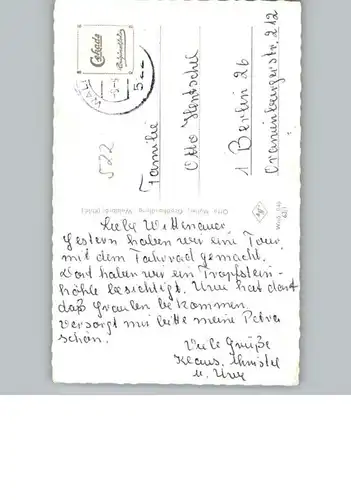 Cekade
5
522
Familie
Otto Hentschel
1 Berlin 26
Oranienburgerstr. 212
Otto Müller, Großhandlung, Waldeck
Agfa
Liebe Wittenauer,
Gestern haben wir eine Tour
mit dem Fahrrad gemacht.
Dort haben wir ein Tropfstein-
höhle besichtigt. Uwe hat dort
daß Graulen bekommen.
Versorgt mir bitte meine Petra
schön.
Viele Grüße
Klaus, Christel
u. Uwe